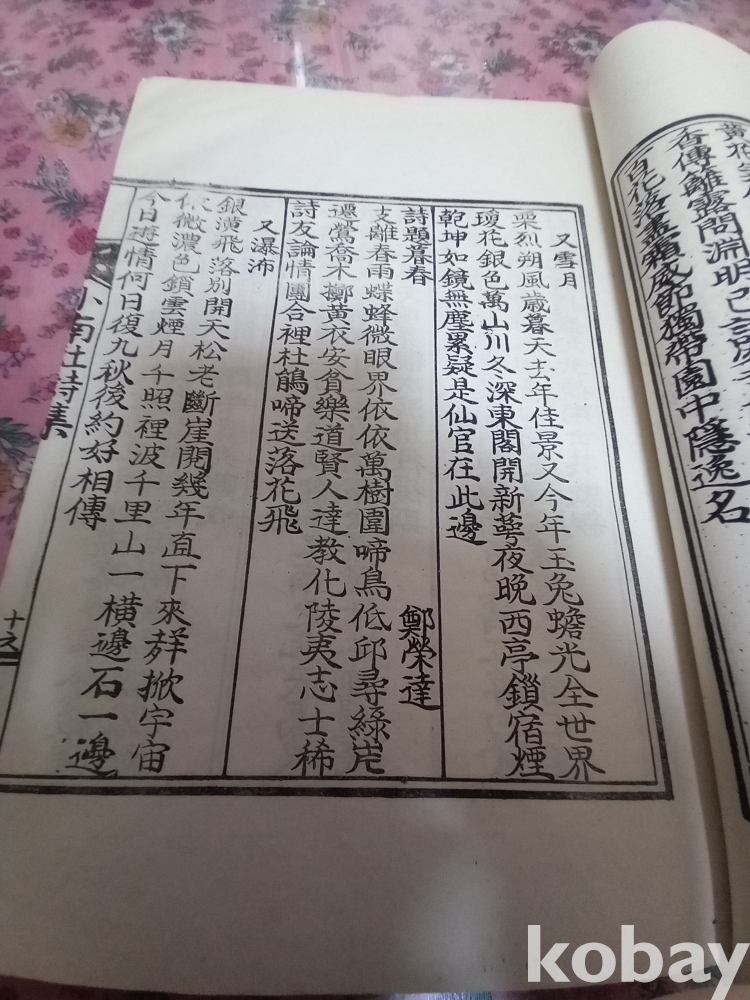 香傳離露問淵明
百花落盡獨帶園中隱逸名
又雪月
栗烈朔風歲暮天去年佳景又今年玉兔蟾光全世界
瓊花銀色萬山川冬深東閣開新萼夜晩西亭鎖宿煙
乾坤如鏡無塵累疑是仙官在此邊
詩題暮春 鄭榮達
支離春雨蝶蜂微眼界依依萬樹圍啼鳥低邱尋綠岸
遷鶯喬木擲黃衣安貧樂道賢人達敎化陵夷志士稀
詩友論情團合裡杜鵑啼送落花飛
又瀑沛
銀潢飛落別開天松老斷崖開幾年直下來掀宇宙
微濃色鎖雲煙月千照裡波千里山一橫邊石一邊
今日逰情何日復九秋後約好相傳
小南社詩集
十六
kobay